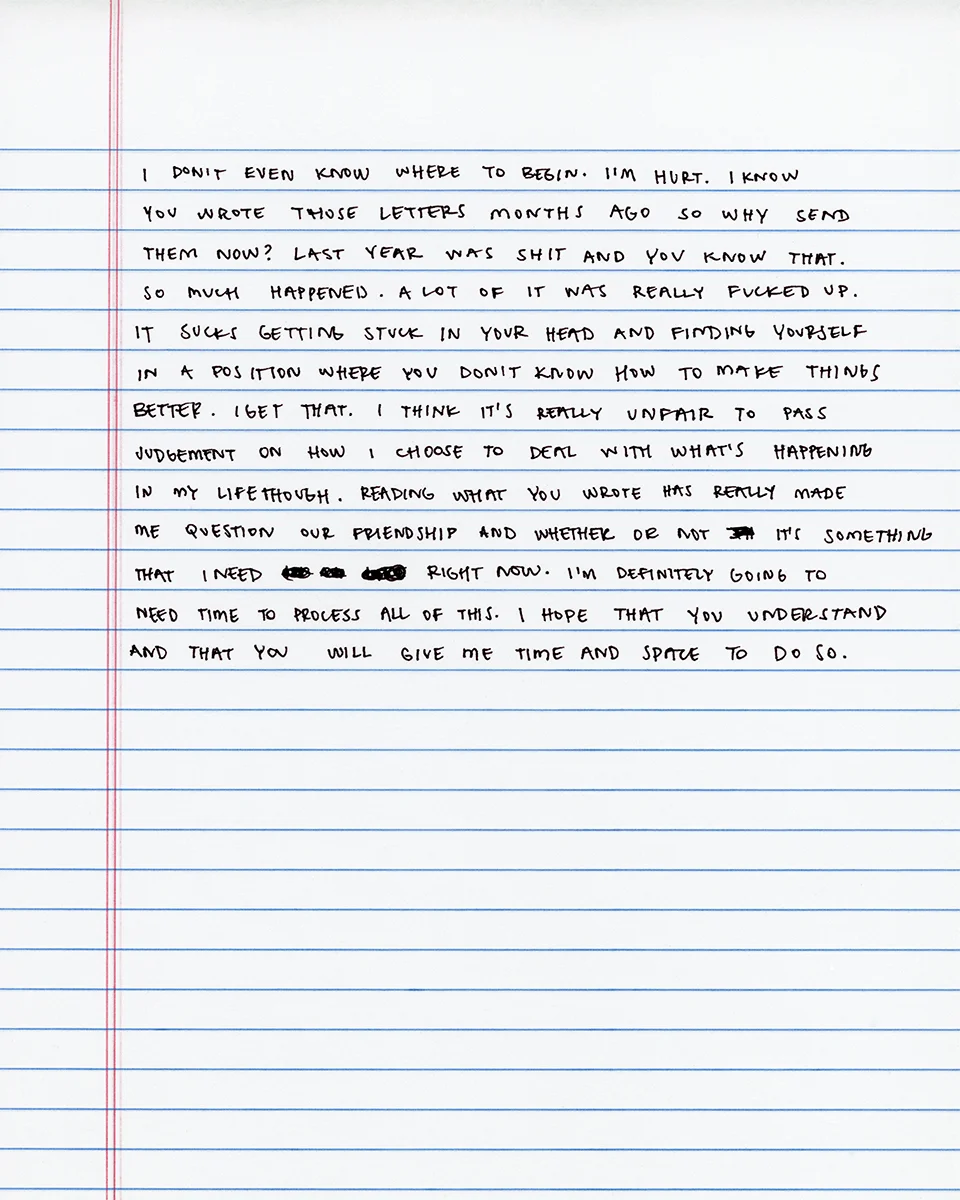 I DON'T EVEN KNOW WHERE TO BEGIN. I'M HURT. I KNOW
YOU WROTE THOSE LETTERS MONTHS AGO SO WHY SEND
THEM NOW? LAST YEAR WAS SHIT AND YOU KNOW THAT.
SO MUCH HAPPENED. A LOT OF IT WAS REALLY FUCKED UP.
IT SUCKS GETTING STUCK IN YOUR HEAD AND FINDING YOURSELF
IN A POSITION WHERE YOU DON'T KNOW HOW TO MAKE THINGS
BETTER. I GET THAT. I THINK IT'S REALLY UNFAIR TO PASS
JUDGEMENT ON HOW I CHOOSE TO DEAL WITH WHAT'S HAPPENING
IN MY LIFE THOUGH. READING WHAT YOU WROTE HAS REALLY MADE
ME QUESTION OUR FRIENDSHIP AND WHETHER OR NOT IT'S SOMETHING
THAT I NEED RIGHT NOW. I'M DEFINITELY GOING TO
NEED TIME TO PROCESS ALL OF THIS. I HOPE THAT YOU UNDERSTAND
AND THAT YOU WILL GIVE ME TIME AND SPACE TO DO SO.